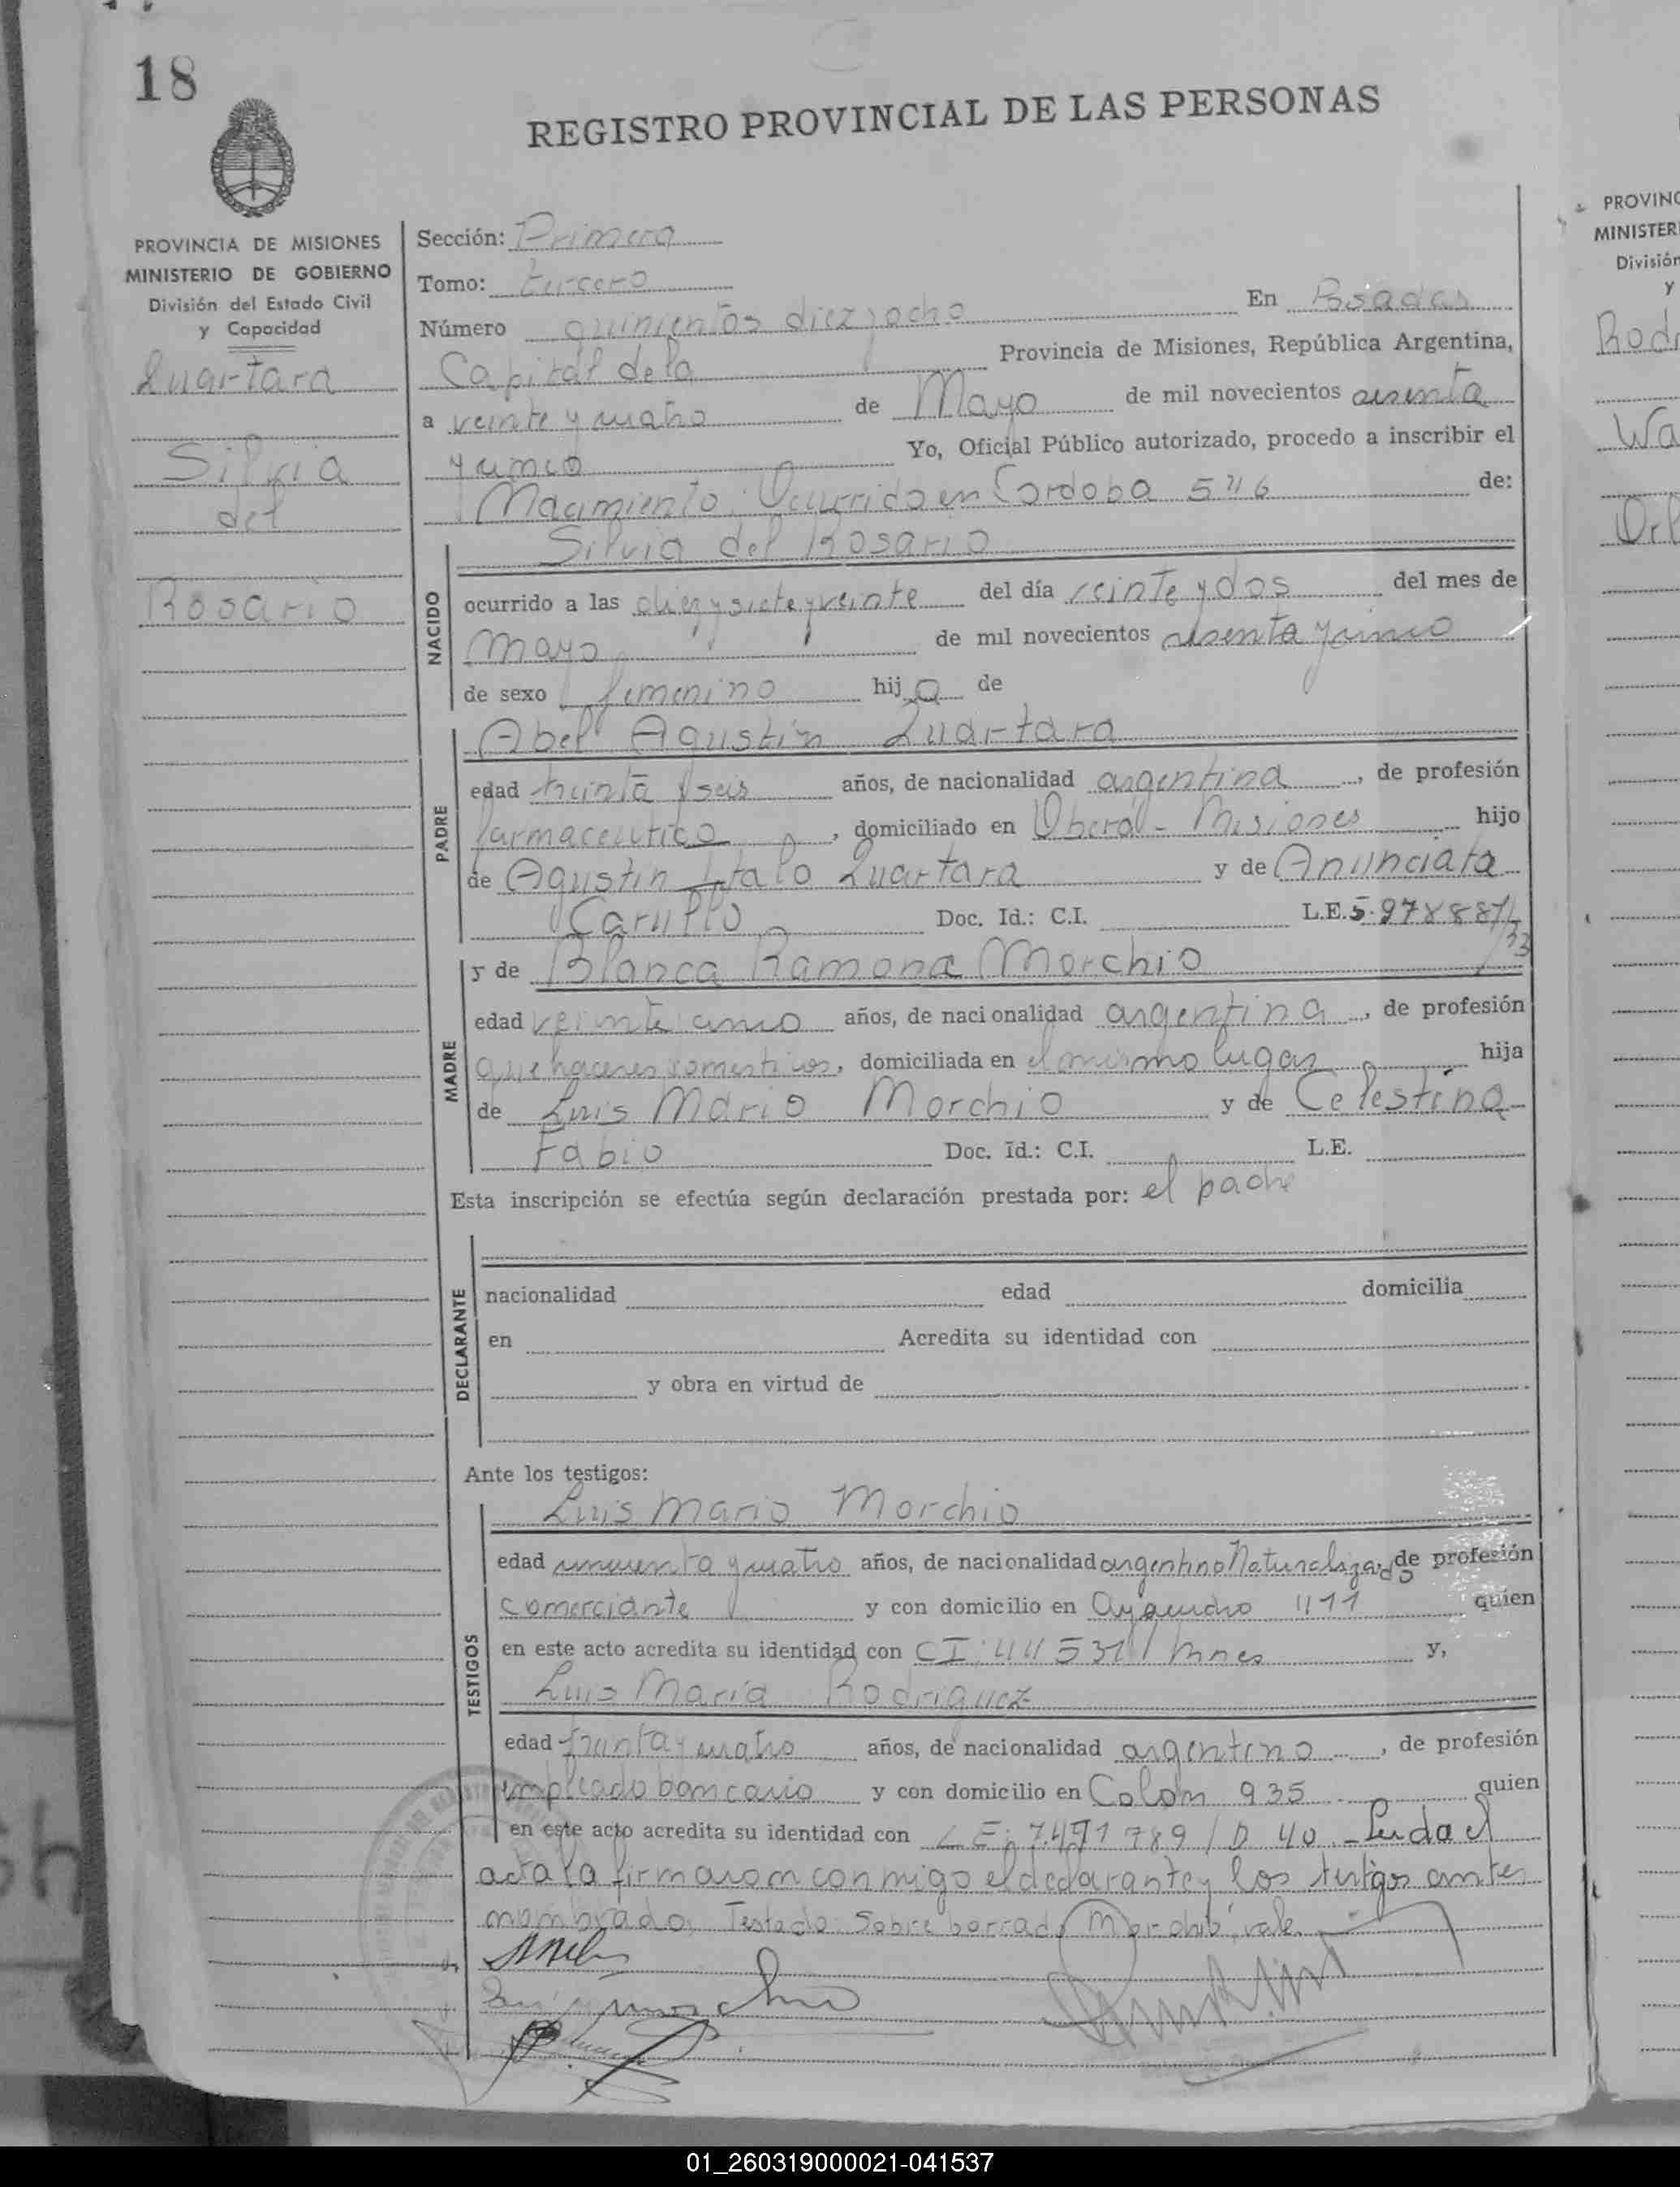 18
REGISTRO PROVINCIAL DE LAS PERSONAS
PROVINCIA DE MISIONES
MINISTERIO DE GOBIERNO
División del Estado Civil
y Capacidad
Quartara
Silvia
del
Rosario
Sección: Primera
Tomo: tercero
Número quinientos diez y ocho En Posadas
Capital de la Provincia de Misiones, República Argentina,
a veinte y cuatro de Mayo de mil novecientos sesenta
y cinco Yo, Oficial Público autorizado, procedo a inscribir el
Nacimiento. Ocurrido en Cordoba 546 de:
NACIDO
Silvia del Rosario
ocurrido a las diez y siete y veinte del día veinte y dos del mes de
mayo de mil novecientos sesenta y cinco
de sexo femenino hija de
PADRE
Abel Agustin Quartara
edad treinta y seis años, de nacionalidad argentina, de profesión
farmaceutico, domiciliado en Oberá - Misiones hijo
de Agustin Italo Quartara y de Anunciata
Carullo Doc. Id.: C.I. L.E. 5.978887/
33
MADRE
y de Blanca Ramona Morchio
edad veinte cinco años, de nacionalidad argentina, de profesión
quehaceres domesticos, domiciliada en el mismo lugar hija
de Luis Mario Morchio y de Celestina
Fabio Doc. Id.: C.I. L.E.
Esta inscripción se efectúa según declaración prestada por: el padre
DECLARANTE
nacionalidad edad domicilia
en Acredita su identidad con
y obra en virtud de
Ante los testigos:
TESTIGOS
Luis Mario Morchio
edad cincuenta y cuatro años, de nacionalidad argentino Naturalizado de profesión
comerciante y con domicilio en Ayacucho quien
en este acto acredita su identidad con CI: Mnes y,
Luis Maria Rodriguez
edad treinta y cuatro años, de nacionalidad argentino, de profesión
empleado bancario y con domicilio en Colón 935 quien
en este acto acredita su identidad con LE: 7.471789/D 40. Leida el
acta la firmaron conmigo el declarante y los testigos antes
nombrado. Testado: Sobre borrado "Morchio", vale.
PROVINC
MINISTER
División
y
Rodr
Wa
Orl
01_260319000021-041537